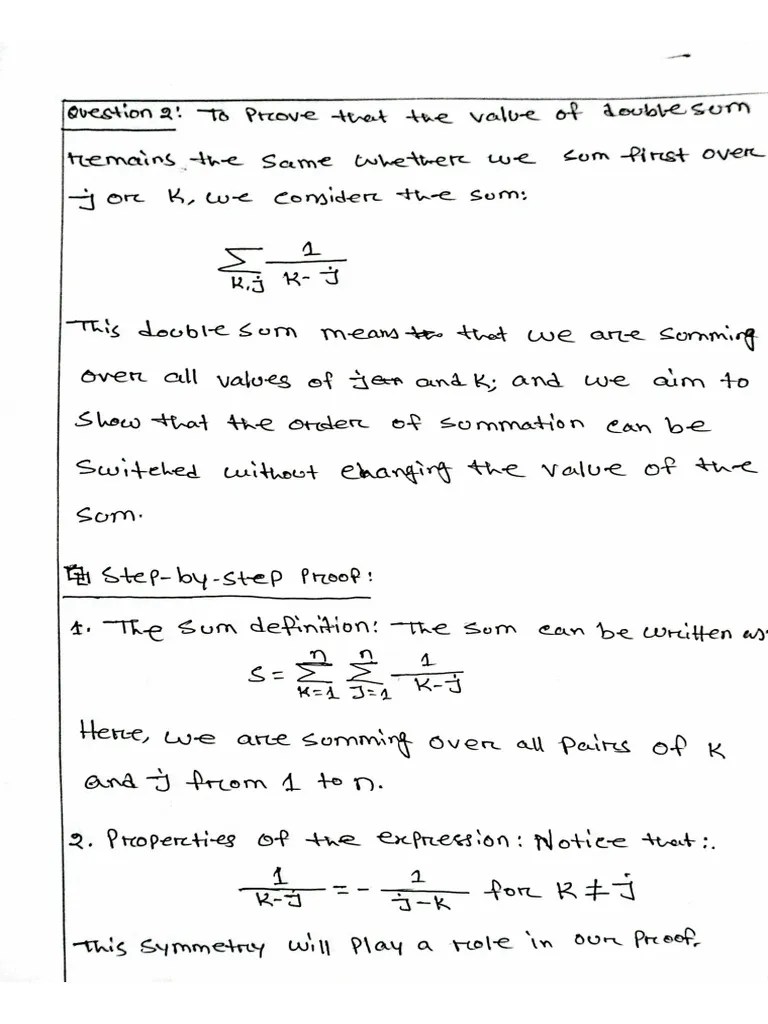 Question 2: To Prove that the value of double sum
remains the same whether we sum first over
j or k, we consider the sum:
∑ 1/(k-j)
k,j
This double sum means that we are summing
over all values of j and k; and we aim to
show that the order of summation can be
switched without changing the value of the
sum.
Step-by-step proof:
1. The sum definition: The sum can be written as:
S = ∑_{k=1}^{n} ∑_{j=1}^{n} 1/(k-j)
Here, we are summing over all pairs of k
and j from 1 to n.
2. Properties of the expression: Notice that:.
1/(k-j) = - 1/(j-k) for k ≠ j
This symmetry will play a role in our proof.